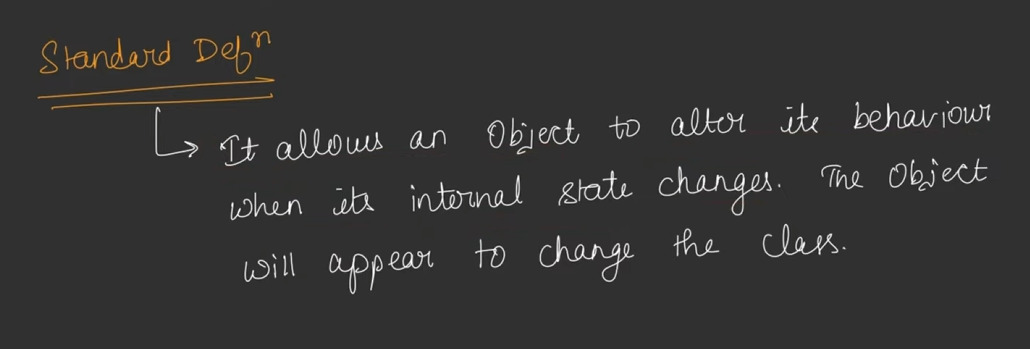 Standard Defⁿ
It allows an Object to alter its behaviour
when its internal state changes. The Object
will appear to change the class.